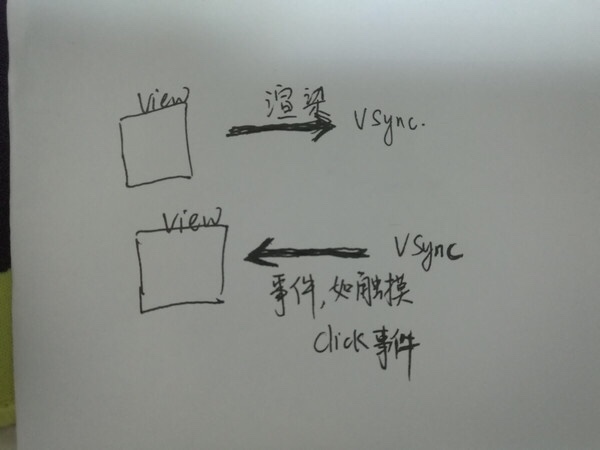 View
渲染
VSync.
View
VSync
事件,如触摸
Click事件